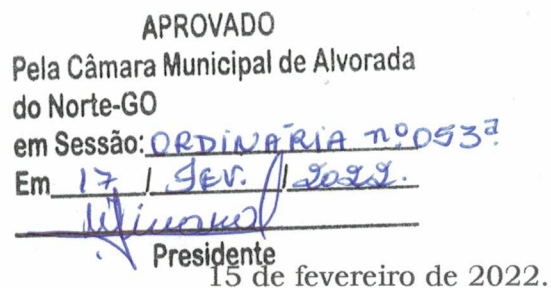 APROVADO
Pela Câmara Municipal de Alvorada
do Norte-GO
em Sessão: ORDINÁRIA nº 053ª
Em 17 / FEV. / 2022.
Presidente
15 de fevereiro de 2022.